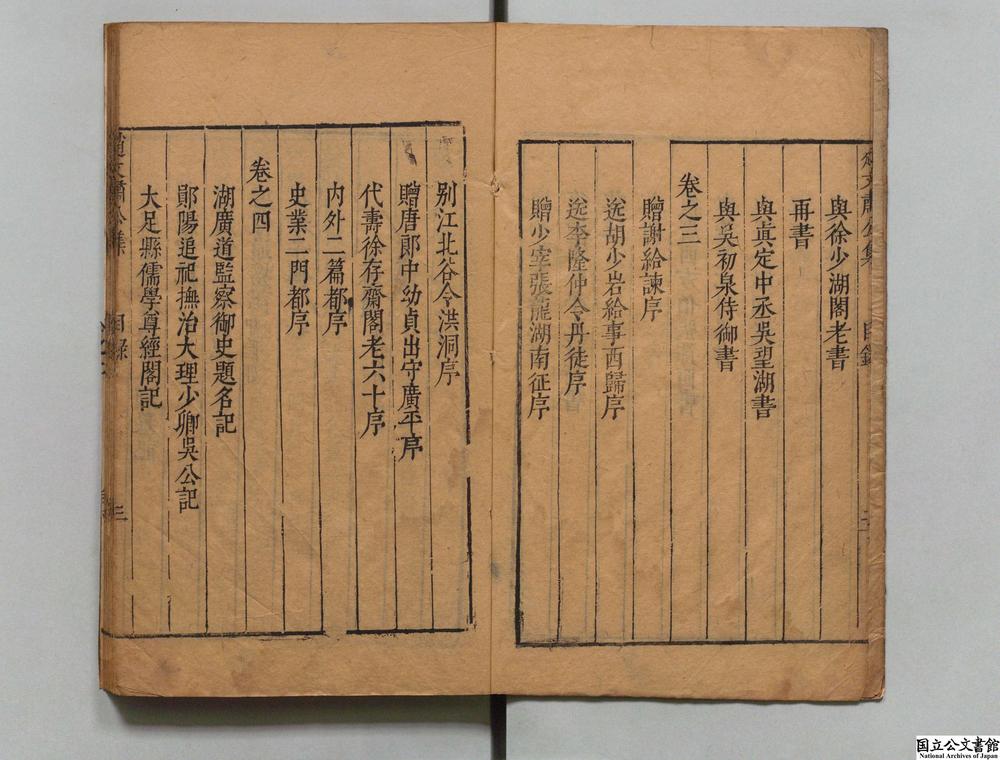 與徐少湖閣老書
再書
與真定中丞吳望湖書
與吳初泉侍御書
卷之三
贈謝給諫序
送胡少岩給事西歸序
送李隆仲令丹徒序
贈少宰張龍湖南征序
别江北谷令洪洞序
贈唐郎中幼貞出守廣平序
代壽徐存齋閣老六十序
内外二篇都序
史業二門都序
卷之四
湖廣道監察御史題名記
鄖陽追祀撫治大理少卿吳公記
大足縣儒學尊經閣記
趙文肅公集 目録 三
国立公文書館
National Archives of Japan